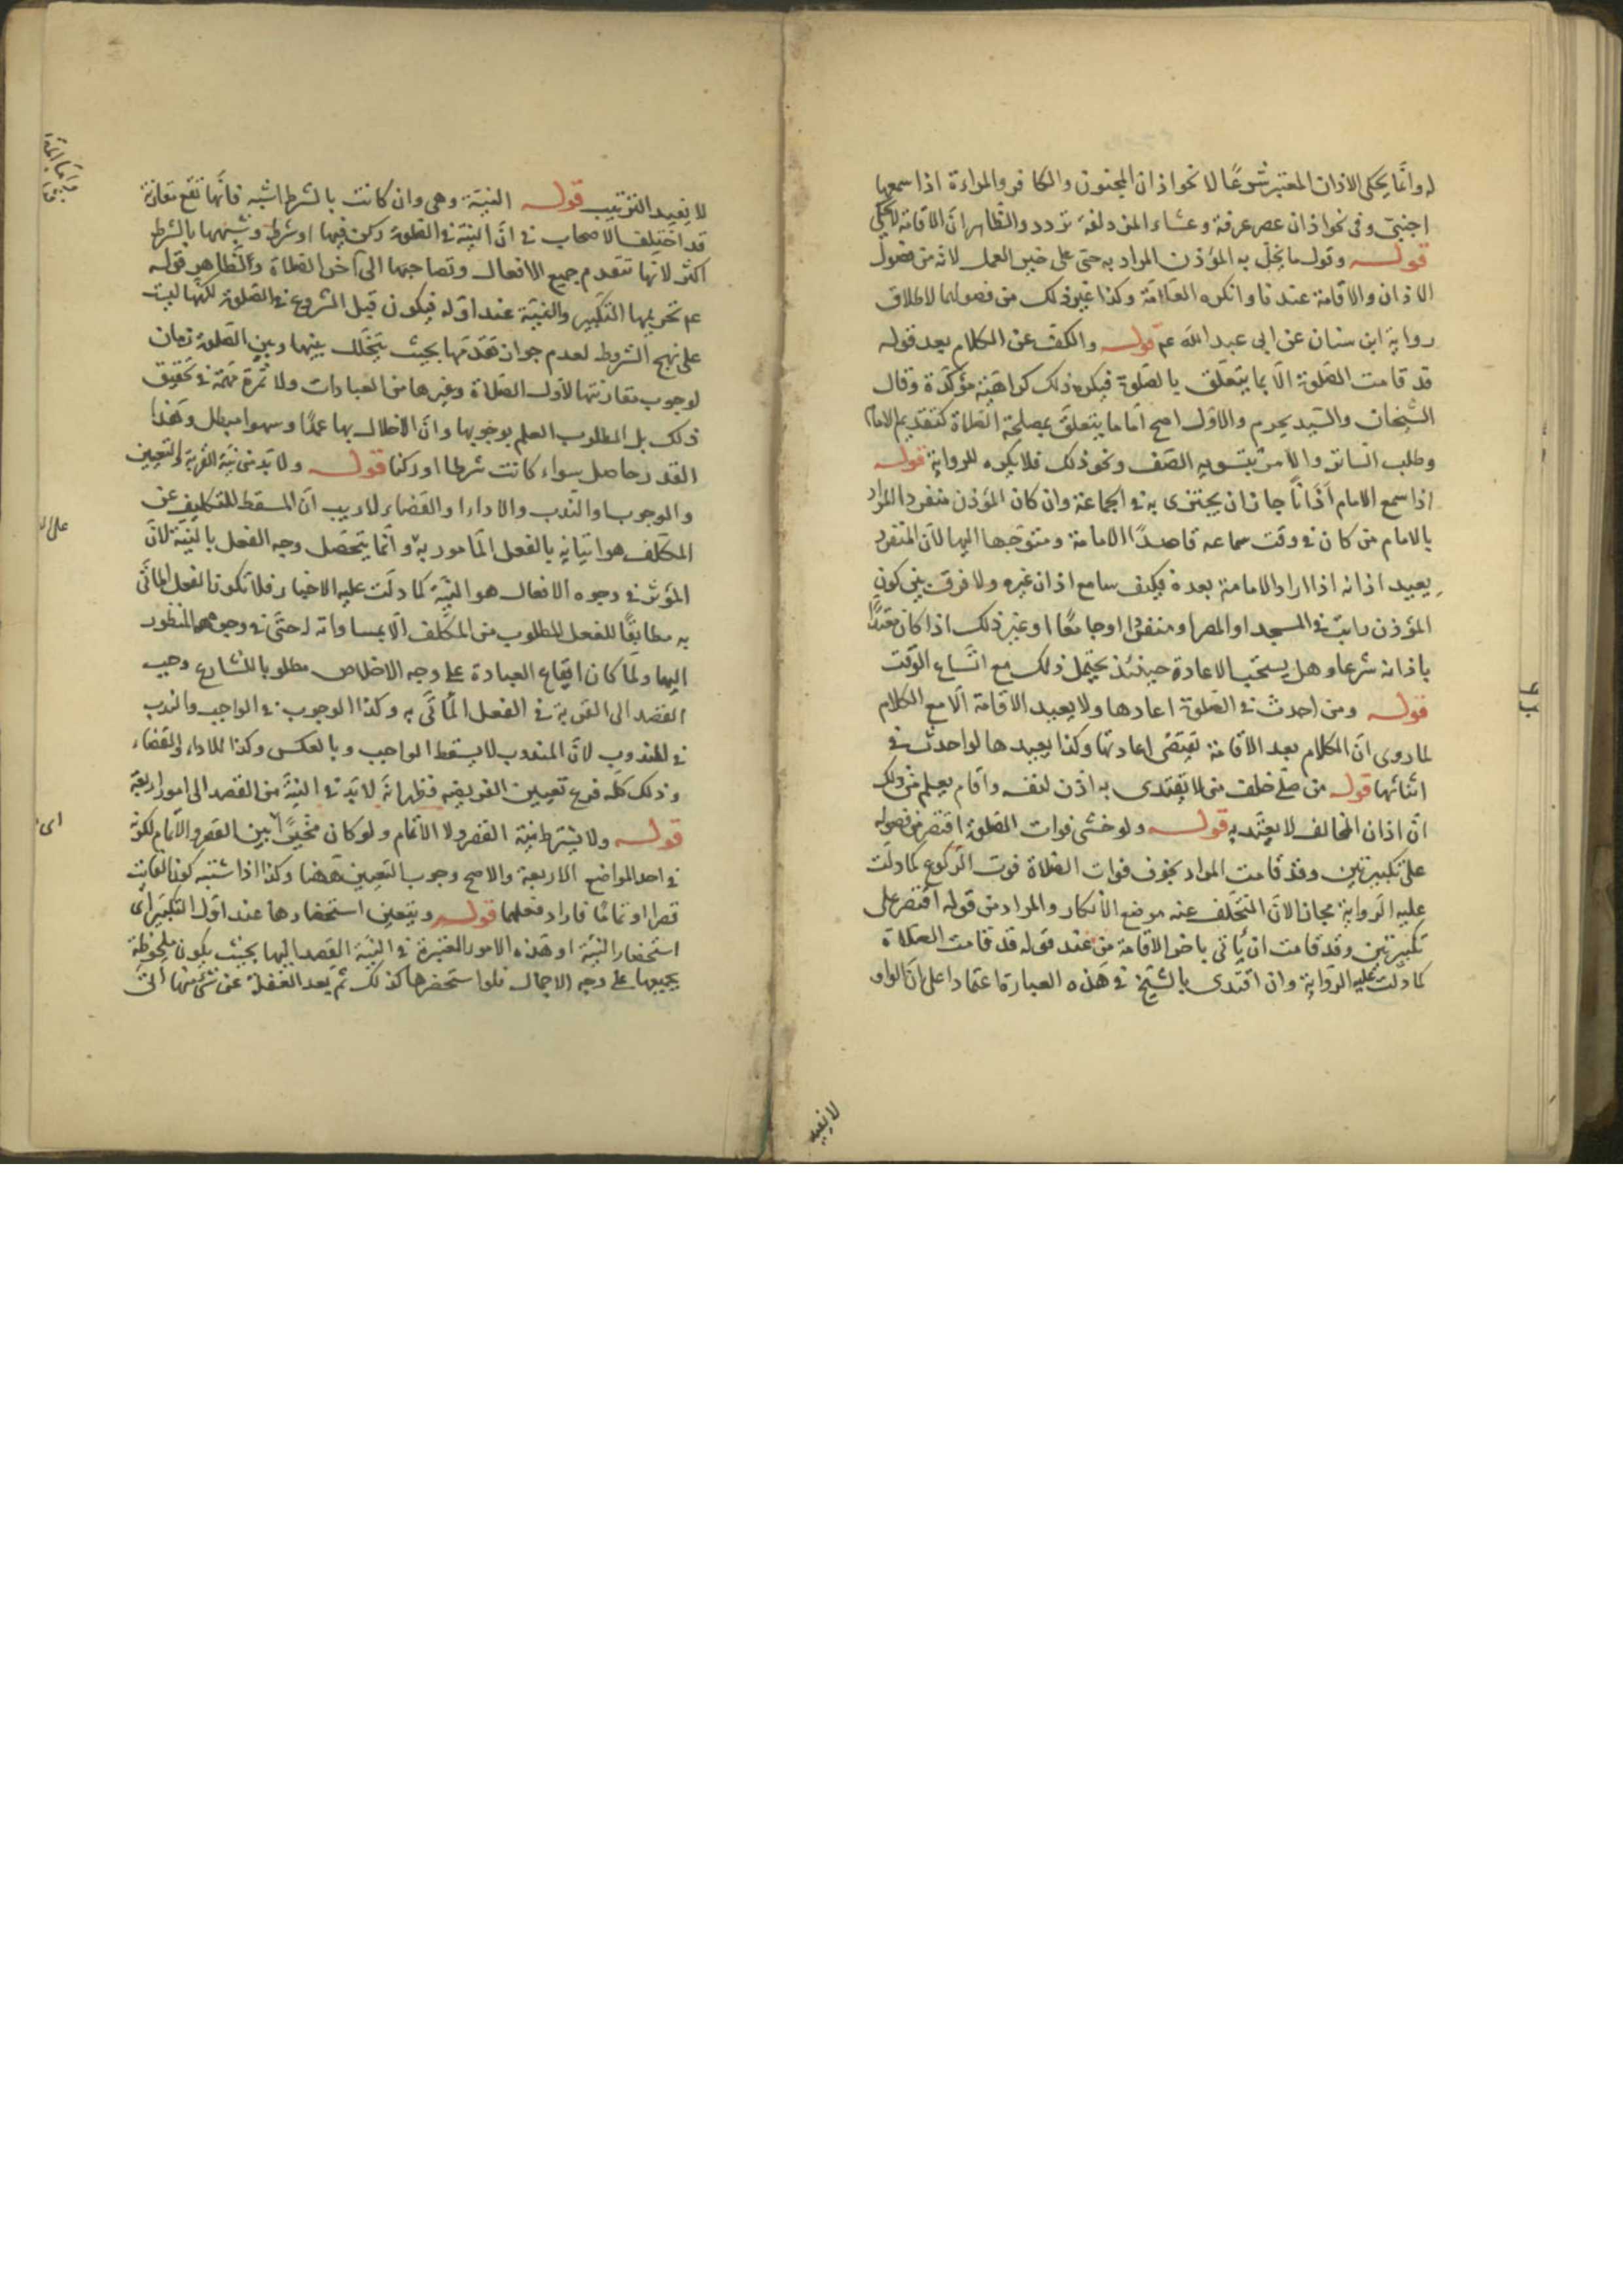 له وانما يحكى الاذان المعتبر شرعًا لا نحو اذان المجنون والكافر والمراءة اذا سمعها
اجنبىّ وفى نحو اذان عصر عرفة وعشاء المزدلفة تردد والظاهر انّ الاقامة لا تحكى
قوله وقول ما يخلّ به المؤذن المراد به حتى على خير العمل لانه من فصول
الاذان والاقامة عندنا وانكره العامّة وكذا غير ذلك من فصولها لاطلاق
رواية ابن سنان عن ابى عبد الله عم قوله والكفّ عن الكلام بعد قوله
قد قامت الصّلوة الّا بما يتعلّق بالصّلوة فيكره ذلك كراهية مؤكّدة وقال
الشّيخان والسّيد يحرم والاوّل اصح اما ما يتعلّق بمصلحة الصّلاة كتقديم الامام
وطلب السّاتر والامر بتسوية الصّف ونحو ذلك فلا يكره للرواية قوله
اذا سمع الامام اذانًا جاز ان يجتزى به فى الجماعة وان كان المؤذن منفردا المراد
بالامام من كان فى وقت سماعه قاصدًا الامامة ومتوجّها اليها لانّ المنفرد
يعيد اذانه اذا اراد الامامة بعده فكيف سامع اذان غيره ولا فرق بين كون
المؤذن راتبٍ فى المسجد او المصر او منفردا او جامعًا او غير ذلك اذا كان معتدًّا
باذانه شرعا وهل يستحب الاعادة حينئذ يحتمل ذلك مع اتّساع الوقت
قوله ومن احدث فى الصّلوة اعادها ولا يعيد الاقامة الّا مع الكلام
لما روى انّ الكلام بعد الاقامة يقتضى اعادتها وكذا يعيدها لو احدث فى
اثنائها قوله من صلّى خلف من لا يقتدى به اذّن لنفسه واقام يعلم من ذلك
انّ اذان المخالف لا يعتدّ به قوله ولو خشى فوات الصّلوة اقتصر من فصوله
على تكبيرتين وقد قامت المراد بخوف فوات الصّلاة فوت الرّكوع كما دلّت
عليه الرّواية مجازا لانّ التخلّف عنه موضع الانكار والمراد من قوله اقتصر على
تكبيرتين وقد قامت ان يأتى باخر الاقامة من عند قوله قد قامت الصّلاة
كما دلّت عليه الرّواية وان اقتدى بالشّيخ فى هذه العبارة اعتمادا على انّ الواو
لا يفيد
لا يفيد الترتيب قوله النيّة وهى وان كانت بالشرط اشبه فانّها تقع مقارنة
قد اختلف الاصحاب فى انّ النيّة فى الصّلوة ركن فيها او شرط وشبهها بالشرط
اكثر لانّها تتقدم جميع الافعال وتصاحبها الى آخر الصّلاة والظّاهر قوله
عم تحريمها التكبير والنيّة عند اوّله فيكون قبل الشروع فى الصّلوة لكنّها ليست
على نهج الشروط لعدم جواز تقدّمها بحيث يتخلّل بينها وبين الصّلوة زمان
لوجوب مقارنتها لاوّل الصّلاة وغيرها من العبادات ولا ثمرة مهمّة فى تحقيق
ذلك بل المطلوب العلم بوجوبها وانّ الاخلال بها عمدًا وسهوا مبطل وهذا
القدر حاصل سواء كانت شرطا او ركنا قوله ولا بدّ من نيّة القربة والتعيين
والوجوب او النّدب والاداء او القضاء لا ريب انّ المسقط للتكليف عن
المكلّف هو اتيانه بالفعل المأمور به وانّما يتحصّل وجه الفعل بالنيّة لانّ
المؤثر فى وجوه الافعال هو النيّة كما دلّت عليه الاخبار فلا تكون الفعل المأتى
به مطابقًا للفعل المطلوب من المكلّف الّا بمساواته له حتى فى وجوهه المنظور
اليها ولمّا كان ايقاع العبادة على وجه الاخلاص مطلوبا للشارع وجب
القصد الى القربة فى الفعل المأتى به وكذا الوجوب فى الواجب والندب
فى المندوب لانّ المندوب لا يسقط الواجب وبالعكس وكذا للاداء والقضاء
وذلك كلّه فرع تعيين الفريضه فظهر انّه لا بدّ فى النيّة من القصد الى امور اربعة
قوله ولا يشترط نيّة القصر ولا الاتمام ولو كان مخيّرًا بين القصر والاتمام لكونه
فى احد المواضع الاربعة والاصح وجوب التعيين ههنا وكذا اذا اشتبه كون الفائت
قصرا او تمامًا فاراد فعلهما قوله ويتعين استحضارها عند اوّل التكبير اى
استحضار النيّة او هذه الامور المعتبرة فى النيّة القصد اليها بحيث يكون ملحوظة
بجميعها على وجه الاجمال فلو استحضرها كذلك ثم بعد الغفلة عن شئ منها أتى